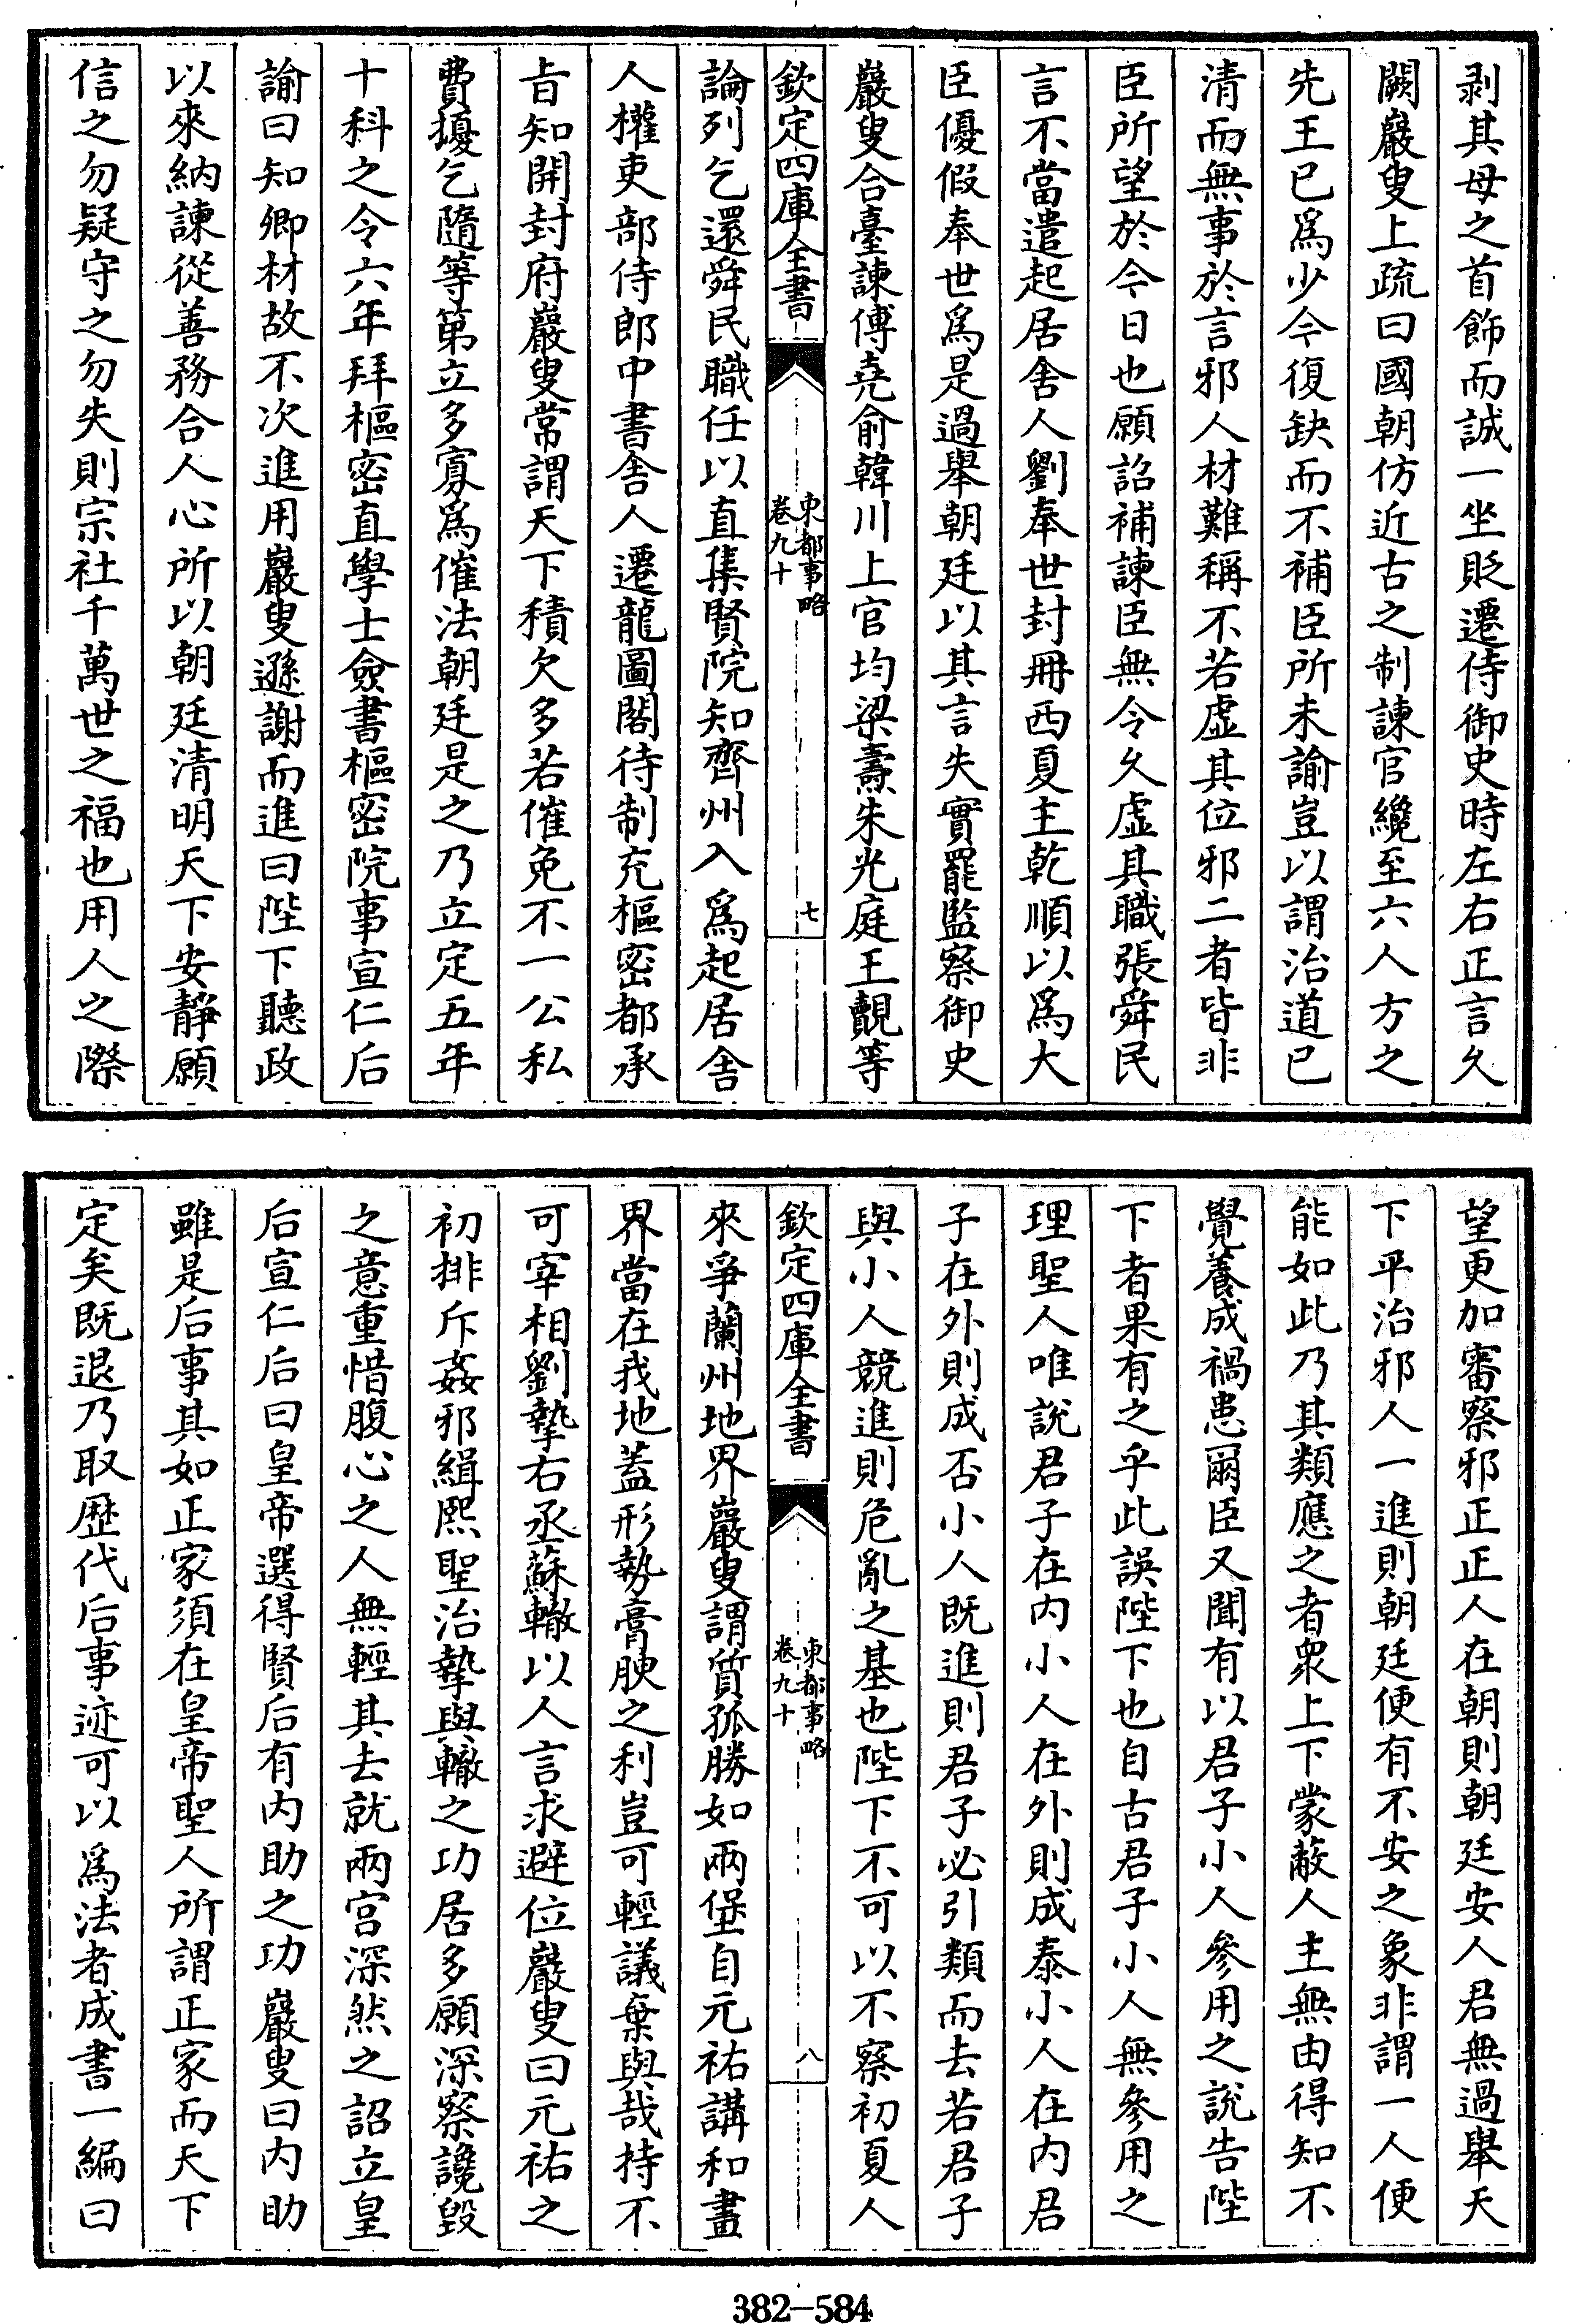 剥其母之首飾而誠一坐貶遷侍御史時左右正言久
闕巖叟上疏曰國朝仿近古之制諫官纔至六人方之
先王已爲少今復缺而不補臣所未諭豈以謂治道已
清而無事於言邪人材難稱不若虛其位邪二者皆非
臣所望於今日也願詔補諫臣無令久虛其職張舜民
言不當遣起居舍人劉奉世封冊西夏主乾順以爲大
臣優假奉世爲是過舉朝廷以其言失實罷監察御史
巖叟合臺諫傅堯俞韓川上官均梁燾朱光庭王覿等
欽定四庫全書
東都事略
卷九十
七
論列乞還舜民職任以直集賢院知齊州入爲起居舍
人權吏部侍郎中書舍人遷龍圖閣待制充樞密都承
旨知開封府巖叟常謂天下積欠多若催免不一公私
費擾乞隨等第立多寡爲催法朝廷是之乃立定五年
十科之令六年拜樞密直學士僉書樞密院事宣仁后
諭曰知卿材故不次進用巖叟遜謝而進曰陛下聽政
以來納諫從善務合人心所以朝廷清明天下安靜願
信之勿疑守之勿失則宗社千萬世之福也用人之際
望更加審察邪正正人在朝則朝廷安人君無過舉天
下平治邪人一進則朝廷便有不安之象非謂一人便
能如此乃其類應之者衆上下蒙蔽人主無由得知不
覺養成禍患爾臣又聞有以君子小人參用之說告陛
下者果有之乎此誤陛下也自古君子小人無參用之
理聖人唯說君子在内小人在外則成泰小人在内君
子在外則成否小人既進則君子必引類而去若君子
與小人競進則危亂之基也陛下不可以不察初夏人
欽定四庫全書
東都事略
卷九十
八
來爭蘭州地界巖叟謂質孤勝如兩堡自元祐講和畫
界當在我地蓋形勢膏腴之利豈可輕議棄與哉持不
可宰相劉摯右丞蘇轍以人言求避位巖叟曰元祐之
初排斥姦邪緝熙聖治摯與轍之功居多願深察讒毀
之意重惜腹心之人無輕其去就兩宮深然之詔立皇
后宣仁后曰皇帝選得賢后有内助之功巖叟曰内助
雖是后事其如正家須在皇帝聖人所謂正家而天下
定矣既退乃取歷代后事迹可以爲法者成書一編曰
382-584